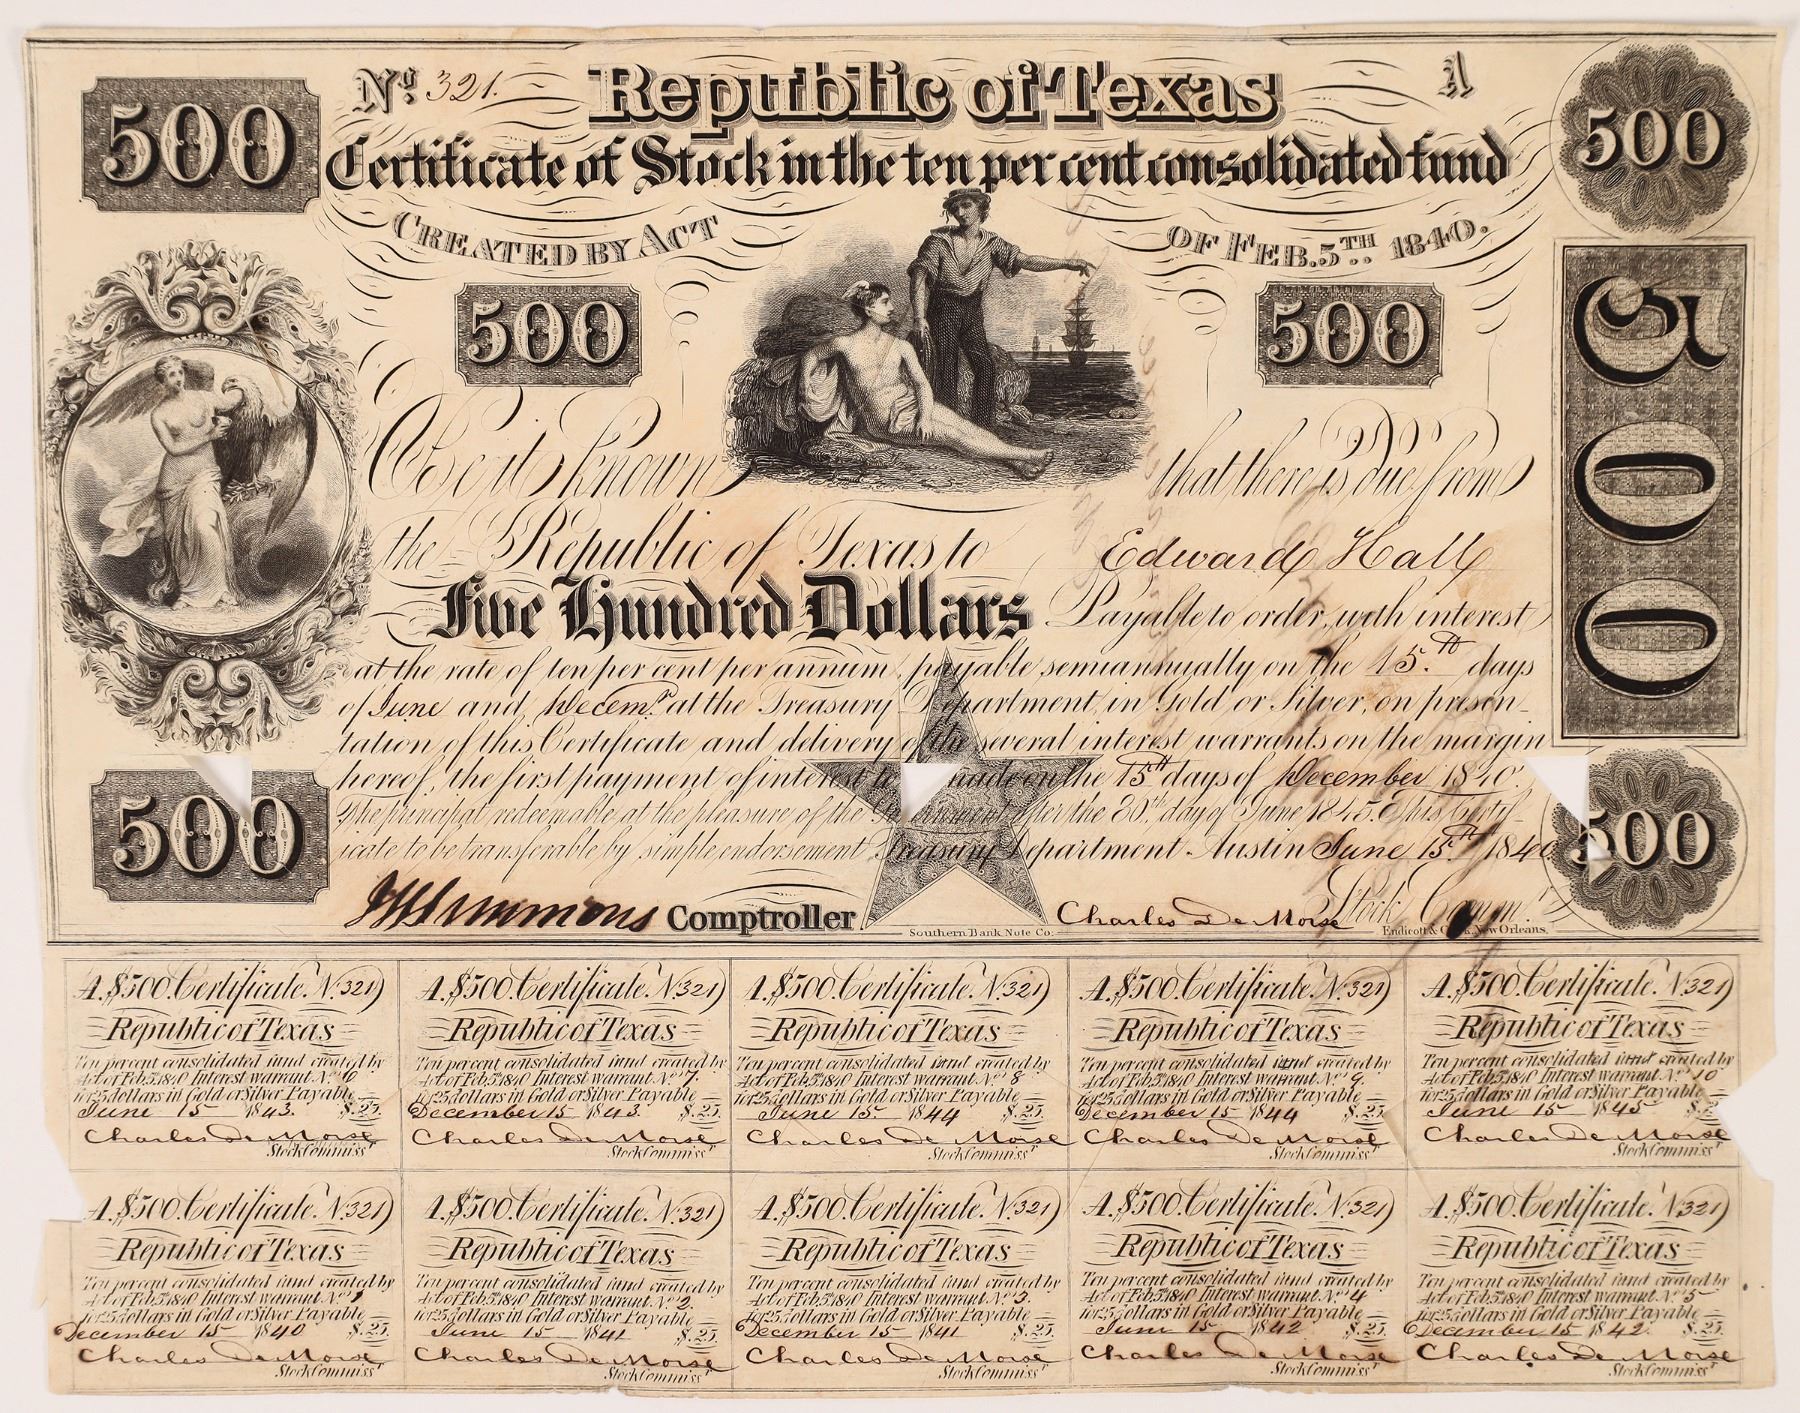 500
No. 321.
Republic of Texas
A
500
Certificate of Stock in the ten per cent consolidated fund
Created by Act
of Feb. 5th. 1840.
500
500
500
Be it known
that there is due from
the Republic of Texas to Edward Hall
Five Hundred Dollars Payable to order, with interest
at the rate of ten per cent per annum, payable semiannually on the 15.th days
of June and Decemr. at the Treasury Department, in Gold or Silver, on presen-
tation of this Certificate and delivery of the several interest warrants on the margin
hereof, the first payment of interest to made on the 15th days of December 1840.
The principal redeemable at the pleasure of the Government after the 30th day of June 1845. This Certif-
icate to be transferable by simple endorsement Treasury Department. Austin June 15th 1840
500
500
Simmons Comptroller
Charles De Morse Stock Comm.r
Southern Bank Note Co.
Endicott & New Orleans.
A. $500. Certificate. N. 321
Republic of Texas
Ten per cent consolidated fund created by
Act of Feb. 5. 1840 Interest warrant No. 6
for 25 dollars in Gold or Silver Payable
June 15 1843. $.25.
Charles De Morse
Stock Commissr
A. $500. Certificate. N. 321
Republic of Texas
Ten per cent consolidated fund created by
Act of Feb. 5. 1840 Interest warrant No. 7.
for 25 dollars in Gold or Silver Payable
December 15 1843. $.25.
Charles De Morse
Stock Commissr
A. $500. Certificate. N. 321
Republic of Texas
Ten per cent consolidated fund created by
Act of Feb. 5. 1840 Interest warrant No. 8
for 25 dollars in Gold or Silver Payable
June 15 1844 $.25.
Charles De Morse
Stock Commissr
A. $500. Certificate. N. 321
Republic of Texas
Ten per cent consolidated fund created by
Act of Feb. 5. 1840 Interest warrant No. 9.
for 25 dollars in Gold or Silver Payable
December 15 1844 $.25.
Charles De Morse
Stock Commissr
A. $500. Certificate. N. 321
Republic of Texas
Ten per cent consolidated fund created by
Act of Feb. 5. 1840 Interest warrant No. 10
for 25 dollars in Gold or Silver Payable
June 15 1845
Charles De Morse
Stock Commissr
A. $500. Certificate. N. 321
Republic of Texas
Ten per cent consolidated fund created by
Act of Feb. 5. 1840 Interest warrant No. 1
for 25 dollars in Gold or Silver Payable
December 15 1840 $.25.
Charles De Morse
Stock Commissr
A. $500. Certificate. N. 321
Republic of Texas
Ten per cent consolidated fund created by
Act of Feb. 5. 1840 Interest warrant No. 2.
for 25 dollars in Gold or Silver Payable
June 15 1841 $.25.
Charles De Morse
Stock Commissr
A. $500. Certificate. N. 321
Republic of Texas
Ten per cent consolidated fund created by
Act of Feb. 5. 1840 Interest warrant No. 3.
for 25 dollars in Gold or Silver Payable
December 15 1841 $.25.
Charles De Morse
Stock Commissr
A. $500. Certificate. N. 321
Republic of Texas
Ten per cent consolidated fund created by
Act of Feb. 5. 1840 Interest warrant No. 4
for 25 dollars in Gold or Silver Payable
June 15 1842 $.25.
Charles De Morse
Stock Commissr
A. $500. Certificate. N. 321
Republic of Texas
Ten per cent consolidated fund created by
Act of Feb. 5. 1840 Interest warrant No. 5
for 25 dollars in Gold or Silver Payable
December 15 1842. $.25.
Charles De Morse
Stock Commissr